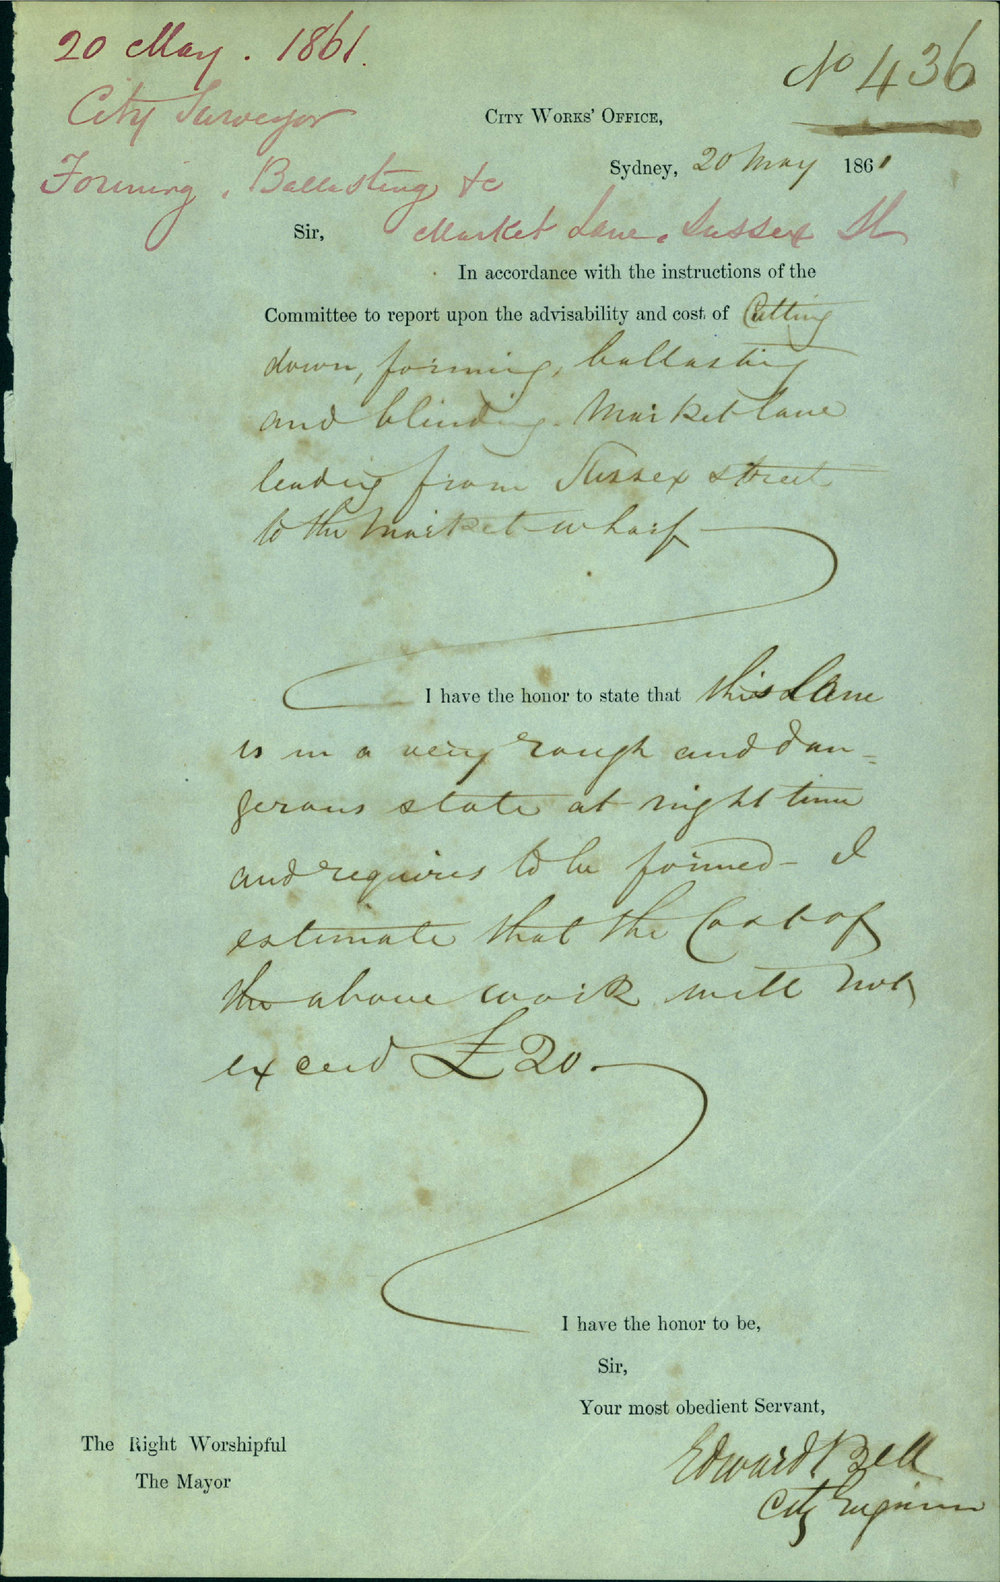 20 May. 1861.
City Surveyor
Forming, Ballasting &c
Market Lane, Sussex St
No 436
CITY WORKS' OFFICE,
Sydney, 20 May 1861
Sir,
In accordance with the instructions of the
Committee to report upon the advisability and cost of Cutting
down, forming, ballasting
and blinding Market lane
leading from Sussex street
to the Market wharf
I have the honor to state that this Lane
is in a very rough and dan=
gerous state at night time
and requires to be formed - I
estimate that the Cost of
the above work will not
exceed £20.
I have the honor to be,
Sir,
Your most obedient Servant,
Edward Bell
City Engineer
The Right Worshipful
The Mayor